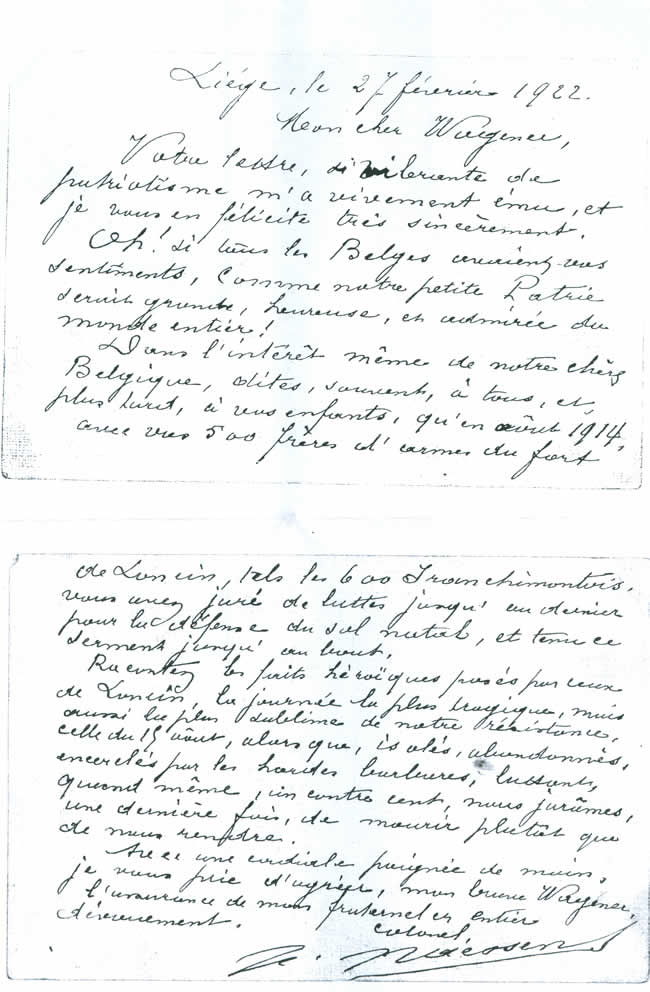 Liége, le 27 février 1922.
Mon cher Wagener,
Votre lettre, si vibrante de
patriotisme m'a vivement ému, et
je vous en félicite très sincèrement.
Oh! si tous les Belges avaient vos
sentiments, comme notre petite Patrie
serait grande, heureuse, et admirée du
monde entier!
Dans l'intérêt même de notre chère
Belgique, dites, souvent, à tous, et,
plus tard, à vos enfants, qu'en août 1914,
avec vos 500 frères d'armes du fort
de Loncin, tels les 600 Franchimontois,
vous avez juré de luttes jusqu'au dernier
pour la défense du sol natal, et tenu ce
serment jusqu'au bout.
Racontez les faits héroïques posés par ceux
de Loncin, la journée la plus tragique, mais
aussi la plus sublime de notre résistance,
celle du 15 août, alors que, isolés, abandonnés,
encerclés par les hordes barbares, luttant,
quand même, un contre cent, nous jurâmes,
une dernière fois, de mourir plutôt que
de nous rendre.
Avec une cordiale poignée de main,
je vous prie d'agréer, mon brave Wagener,
l'assurance de mon fraternel et entier
dévouement.
Colonel
Naessen